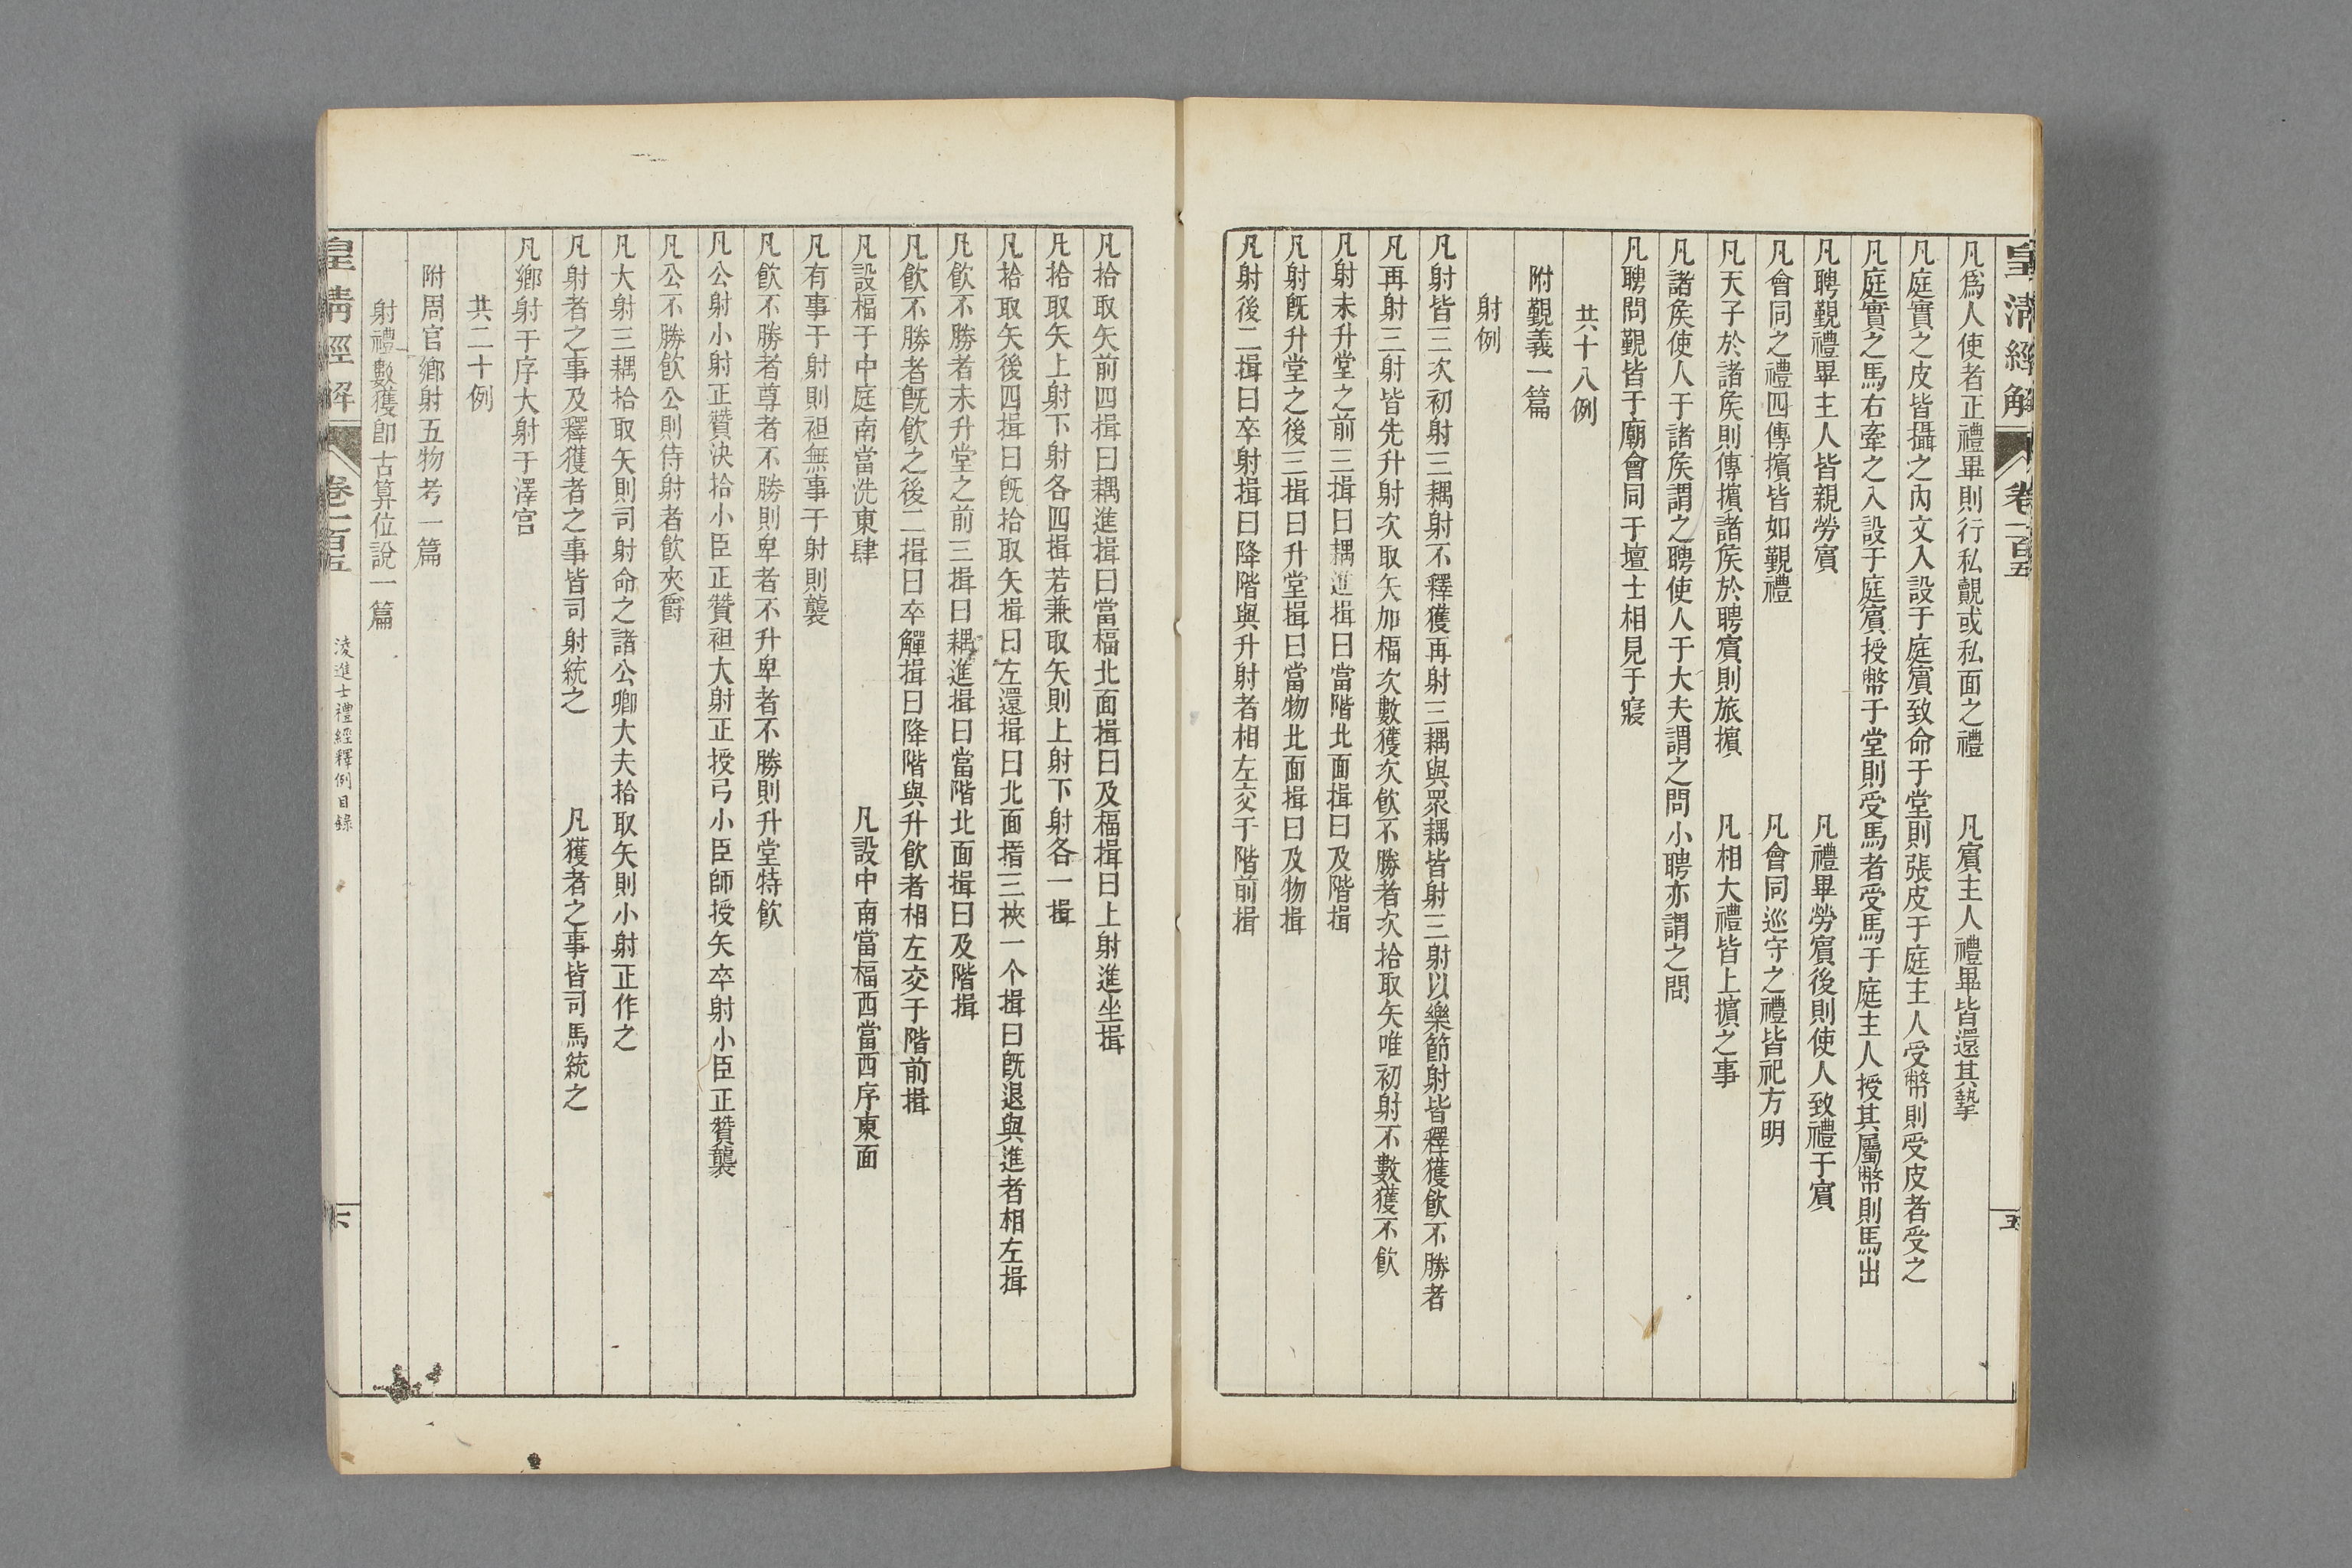 皇淸經解 卷一百五 五
凡爲人使者正禮畢則行私覿或私面之禮 凡賓主人禮畢皆還其摯
凡庭實之皮皆攝之內文入設于庭賓致命于堂則張皮于庭主人受幣則受皮者受之
凡庭實之馬右牽之入設于庭賓授幣于堂則受馬者受馬于庭主人授其屬幣則馬出
凡聘覲禮畢主人皆親勞賓 凡禮畢勞賓後則使人致禮于賓
凡會同之禮四傳擯皆如覲禮 凡會同巡守之禮皆祀方明
凡天子於諸矦則傳擯諸矦於聘賓則旅擯 凡相大禮皆上擯之事
凡諸矦使人于諸矦謂之聘使人于大夫謂之問小聘亦謂之問
凡聘問覲皆于廟會同于壇士相見于寢
共十八例
附覲義一篇
射例
凡射皆三次初射三耦射不釋獲再射三耦與眾耦皆射三射以樂節射皆釋獲飮不勝者
凡再射三射皆先升射次取矢加楅次數獲次飮不勝者次拾取矢唯初射不數獲不飮
凡射未升堂之前三揖曰耦進揖曰當階北面揖曰及階揖
凡射旣升堂之後三揖曰升堂揖曰當物北面揖曰及物揖
凡射後二揖曰卒射揖曰降階與升射者相左交于階前揖
凡拾取矢前四揖曰耦進揖曰當楅北面揖曰及楅揖曰上射進坐揖
凡拾取矢上射下射各四揖若兼取矢則上射下射各一揖
凡拾取矢後四揖曰旣拾取矢揖曰左還揖曰北面搢三挾一个揖曰旣退與進者相左揖
凡飮不勝者未升堂之前三揖曰耦進揖曰當階北面揖曰及階揖
凡飮不勝者旣飮之後二揖曰卒觶揖曰降階與升飮者相左交于階前揖
凡設楅于中庭南當洗東肆 凡設中南當楅西當西序東面
凡有事于射則袒無事于射則襲
凡飮不勝者尊者不勝則卑者不升卑者不勝則升堂特飮
凡公射小射正贊決拾小臣正贊袒大射正授弓小臣師授矢卒射小臣正贊襲
凡公不勝飮公則侍射者飮夾爵
凡大射三耦拾取矢則司射命之諸公卿大夫拾取矢則小射正作之
凡射者之事及釋獲者之事皆司射統之 凡獲者之事皆司馬統之
凡鄉射于序大射于澤宮
共二十例
附周官鄉射五物考一篇
射禮數獲卽古算位說一篇
皇淸經解 卷一百五 淩進士禮經釋例目錄 六